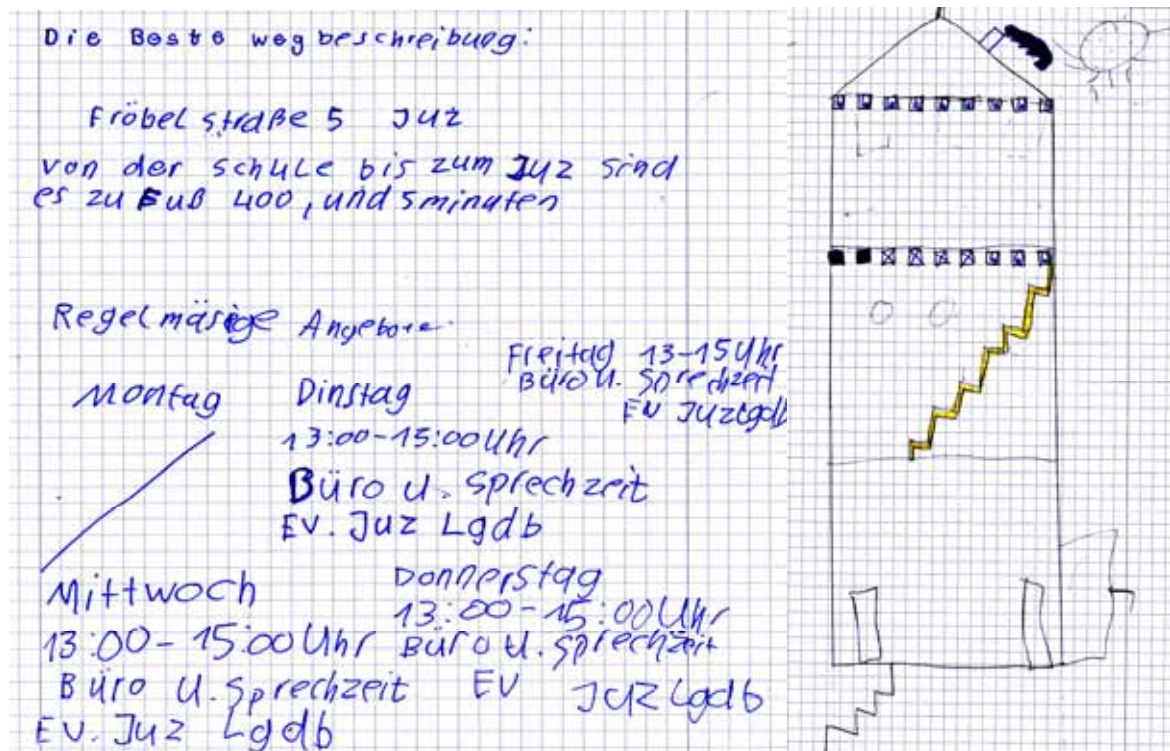 Die Beste wegbeschreibung:
Fröbelstraße 5 Juz
von der schule bis zum Juz sind
es zu Fuß 400, und 5minuten
Regelmäsige Angebote
Montag
Dinstag
13:00-15:00Uhr
Büro u. Sprechzeit
EV. Juz Lgdb
Freitag 13-15Uhr
Büro u. Sprechzeit
EV Juz Lgdb
Mittwoch
13:00-15:00Uhr
Büro u. Sprechzeit
EV. Juz Lgdb
Donnerstag
13:00-15:00Uhr
Büro u. Sprechzeit
EV Juz Lgdb